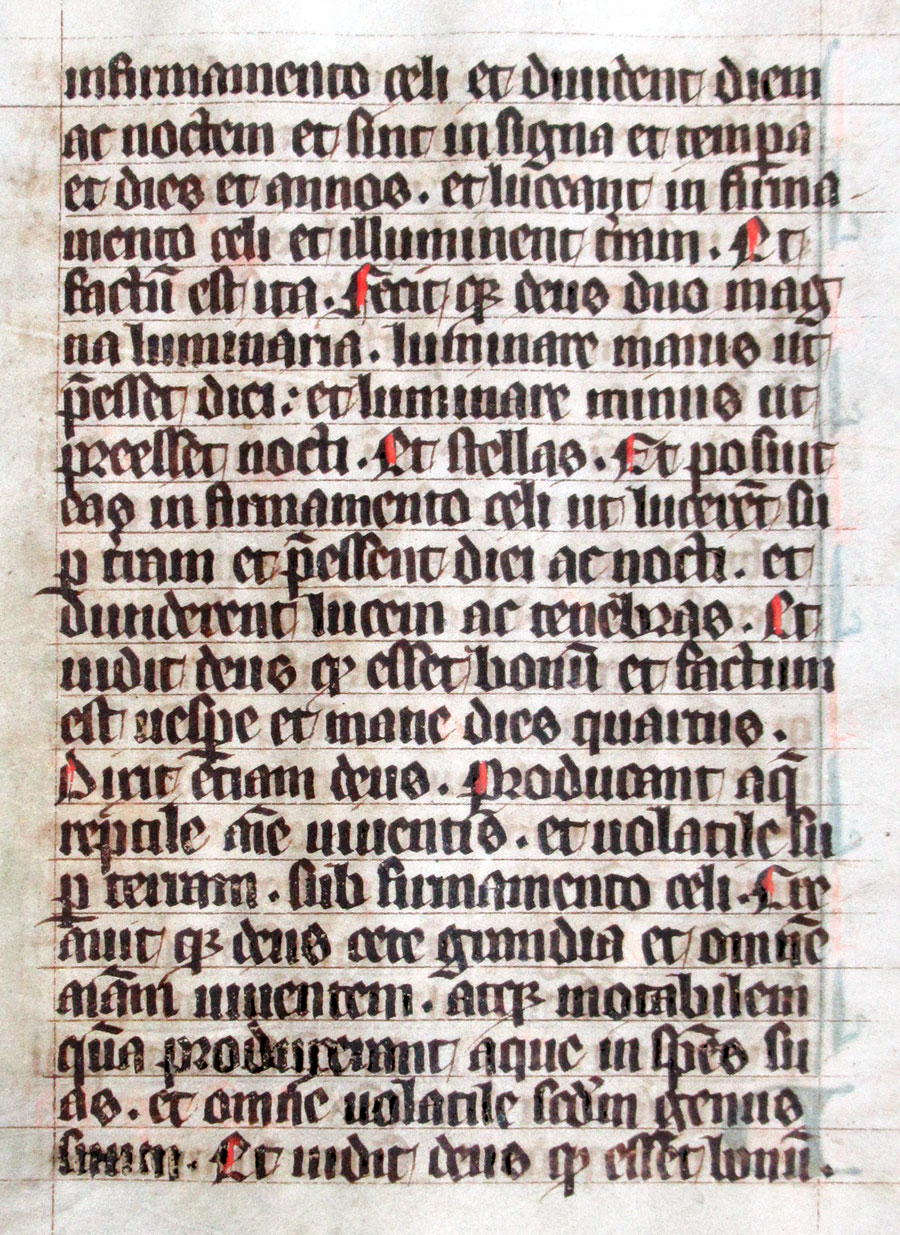 infirmamento celi et diuident diem
ac noctem et sint in signa et tempa
et dies et annos . et luceant in firma
mento celi et illuminent t̾ram . Et
factū est ita . Fecit qꝫ deus duo mag
na luminaria . luminare maius ut
p̄esset diei : et luminare minus ut
preesset nocti . Et stellas . Et posuit
eas in firmamento celi ut lucerēt su
ꝑ t̾ram et p̄essent diei ac nocti . et
diuiderent lucem ac tenebras . Et
uidit deus ꝙ esset bonū et factum
est uesꝑe et mane dies quartus .
Dixit etiam deus . Producant aq̄
reptile aīe uiuentis . et uolatile su
ꝑ terram . sub firmamento celi . Cre
auit qꝫ deus cete grandia et omnē
aīam uiuentem . atqꝫ motabilem
quā produxerant aque in sp̄es su
as . et omne uolatile scdm genus
suum . Et uidit deus ꝙ esset bonū .